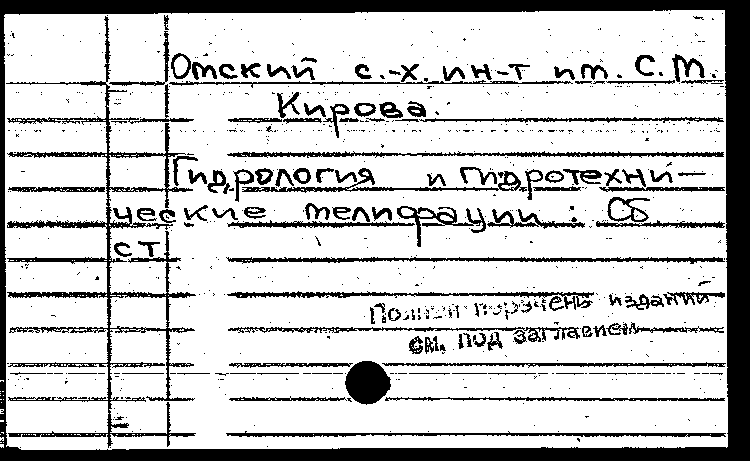 Омский с.-х. ин-т им. С.М.
Кирова.
Гидрология и гидротехни-
ческие мелиорации : Сб
ст
Полный перечень изданий
см. под заглавием